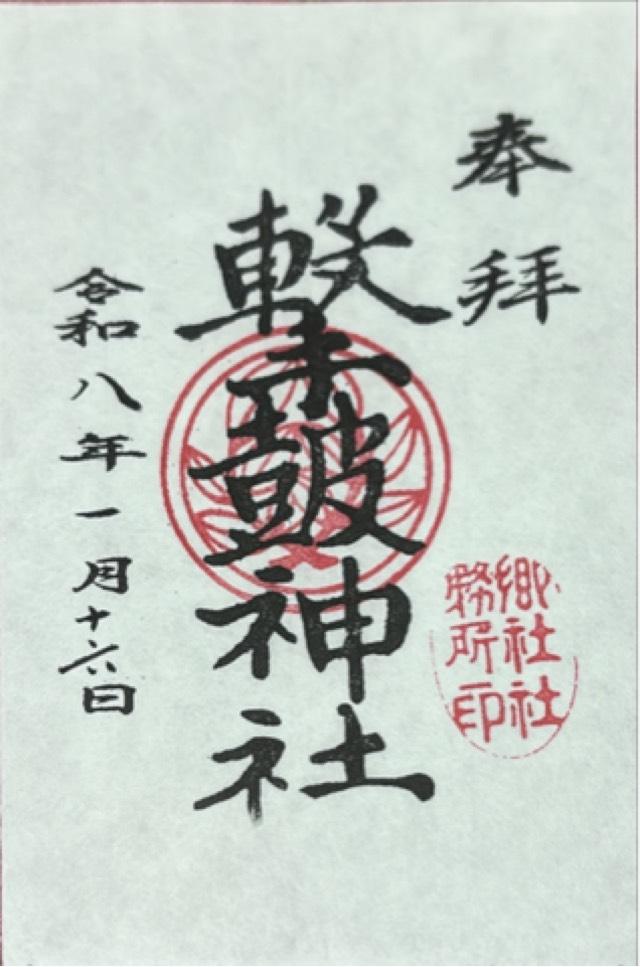 奉拝
撃鼓神社
郷社社
務所印
令和八年一月十六日